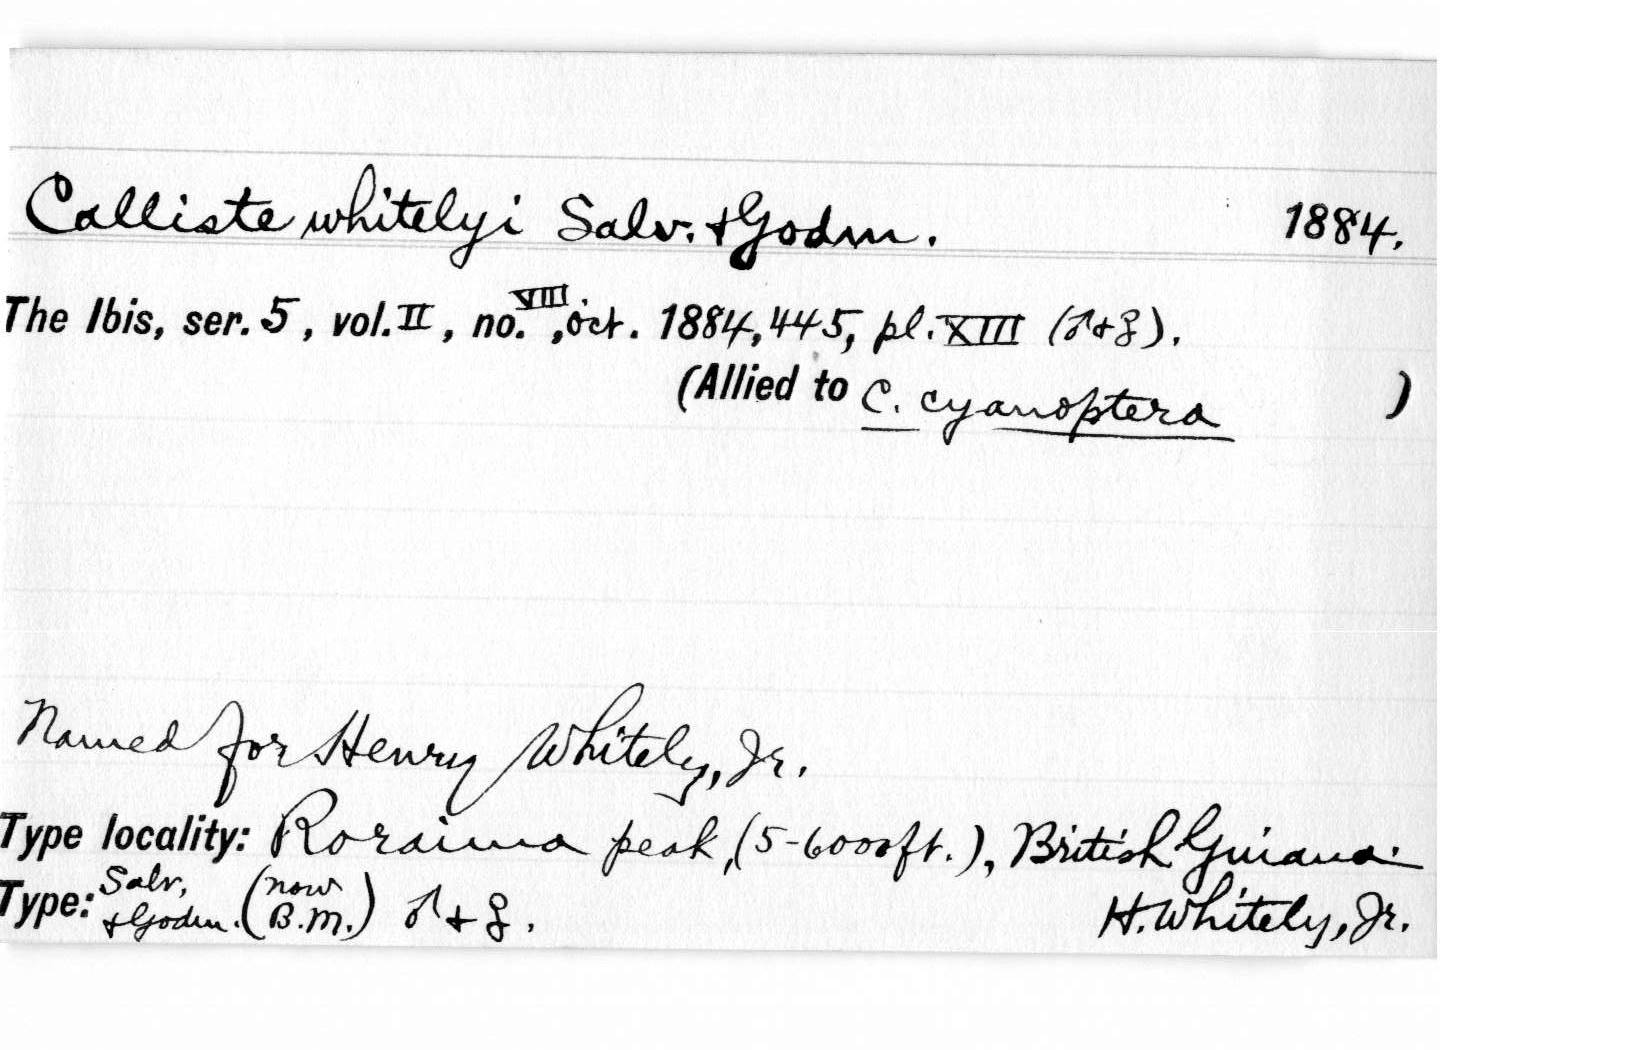 Calliste whitelyi Salv. + Godm. 1884.
The Ibis, ser. 5, vol. II, no. VIII, Oct. 1884, 445, pl. XIII (♂+♀).
(Allied to C. cyanoptera )
Named for Henry Whitely, Jr.
Type locality: Roraima peak, (5-6000ft.), British Guiana.
Type: Salv. + Godm. (now B.M.) ♂+♀. H. Whitely, Jr.